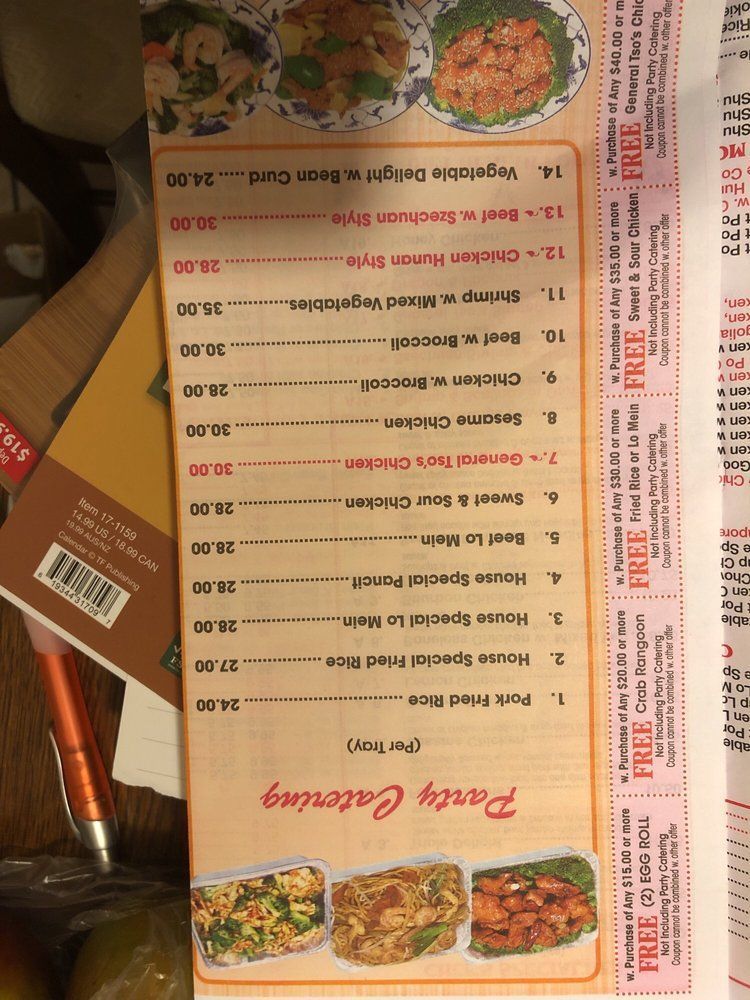 Party Catering
(Per Tray)
1. Pork Fried Rice 24.00
2. House Special Fried Rice 27.00
3. House Special Lo Mein 28.00
4. House Special Pancit 28.00
5. Beef Lo Mein 28.00
6. Sweet & Sour Chicken 28.00
7. General Tso's Chicken 30.00
8. Sesame Chicken 30.00
9. Chicken w. Broccoli 28.00
10. Beef w. Broccoli 30.00
11. Shrimp w. Mixed Vegetables 35.00
12. Chicken Hunan Style 28.00
13. Beef w. Szechuan Style 30.00
14. Vegetable Delight w. Bean Curd 24.00
w. Purchase of Any $15.00 or more
FREE (2) EGG ROLL
Not Including Party Catering
Coupon cannot be combined w. other offer
w. Purchase of Any $20.00 or more
FREE Crab Rangoon
Not Including Party Catering
Coupon cannot be combined w. other offer
w. Purchase of Any $30.00 or more
FREE Fried Rice or Lo Mein
Not Including Party Catering
Coupon cannot be combined w. other offer
w. Purchase of Any $35.00 or more
FREE Sweet & Sour Chicken
Not Including Party Catering
Coupon cannot be combined w. other offer
w. Purchase of Any $40.00 or m
FREE General Tso's Chic
Not Including Party Catering
Coupon cannot be combined w. other offer
Item 17-1159
14.99 US / 18.99 CAN
19.99 AUS/NZ
Calendar © TF Publishing
6 19344 31709 7
$19.9